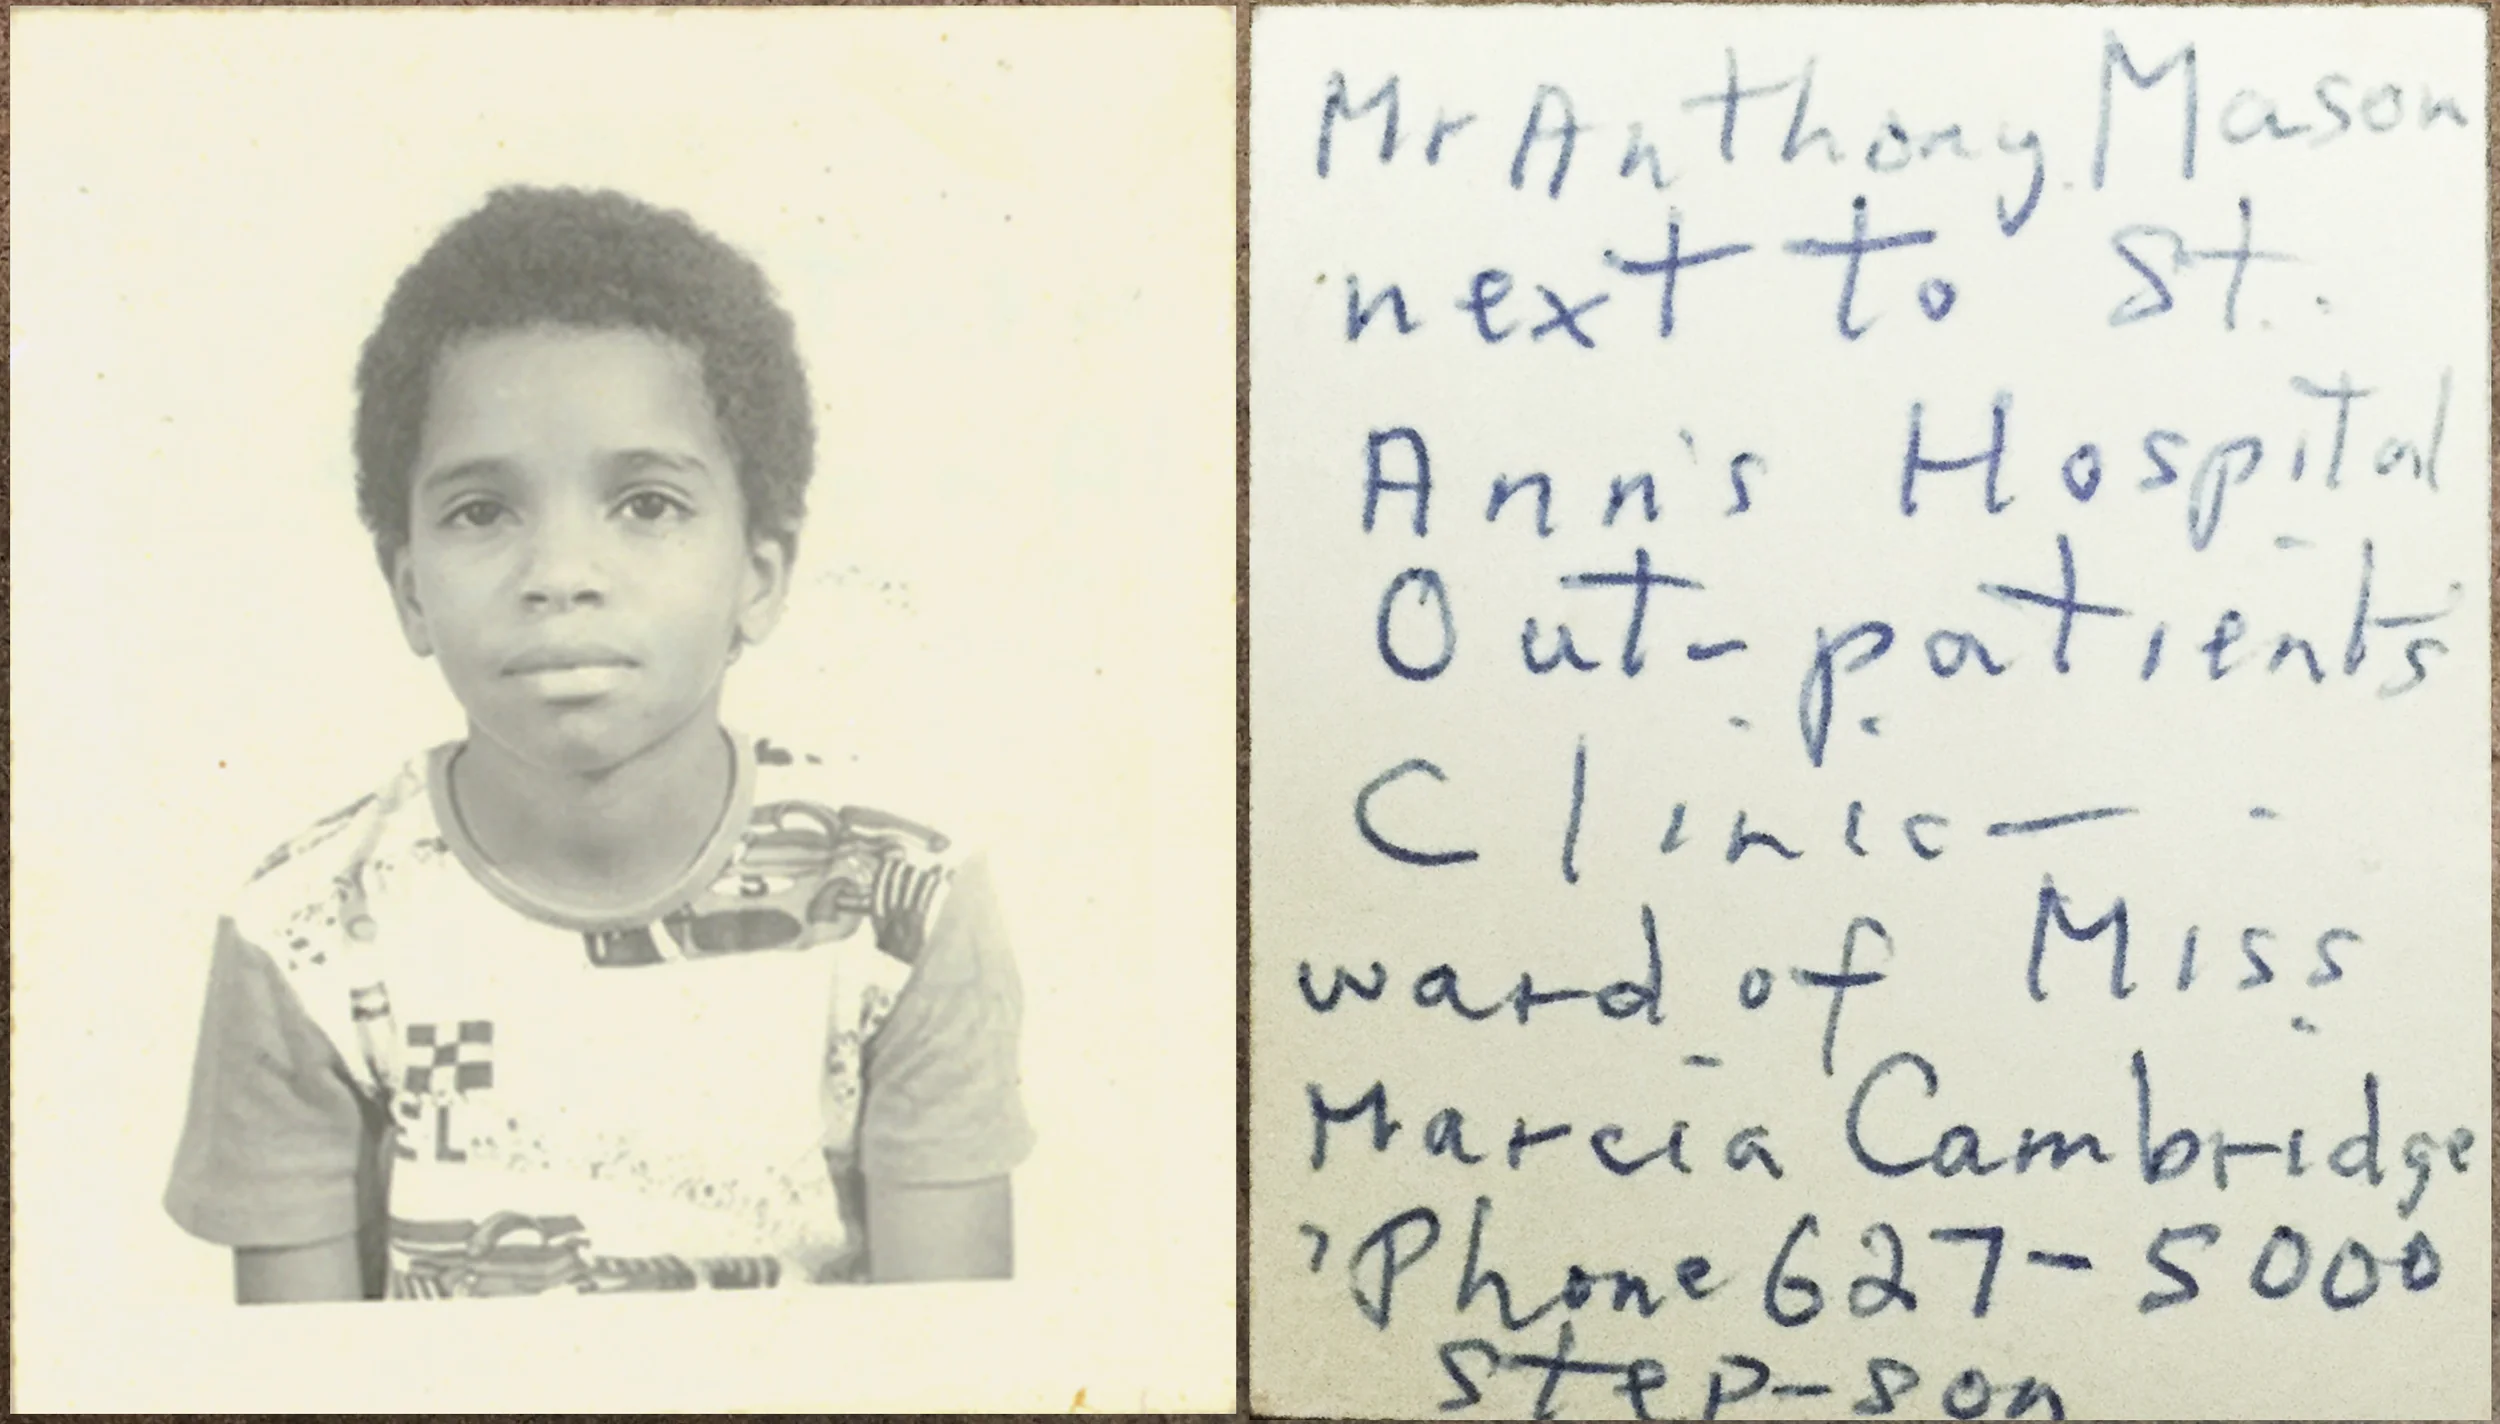 L
Mr Anthony Mason
next to St.
Ann's Hospital
Out-patients
Clinic —
ward of Miss
Marcia Cambridge
'Phone 627-5000
step-son